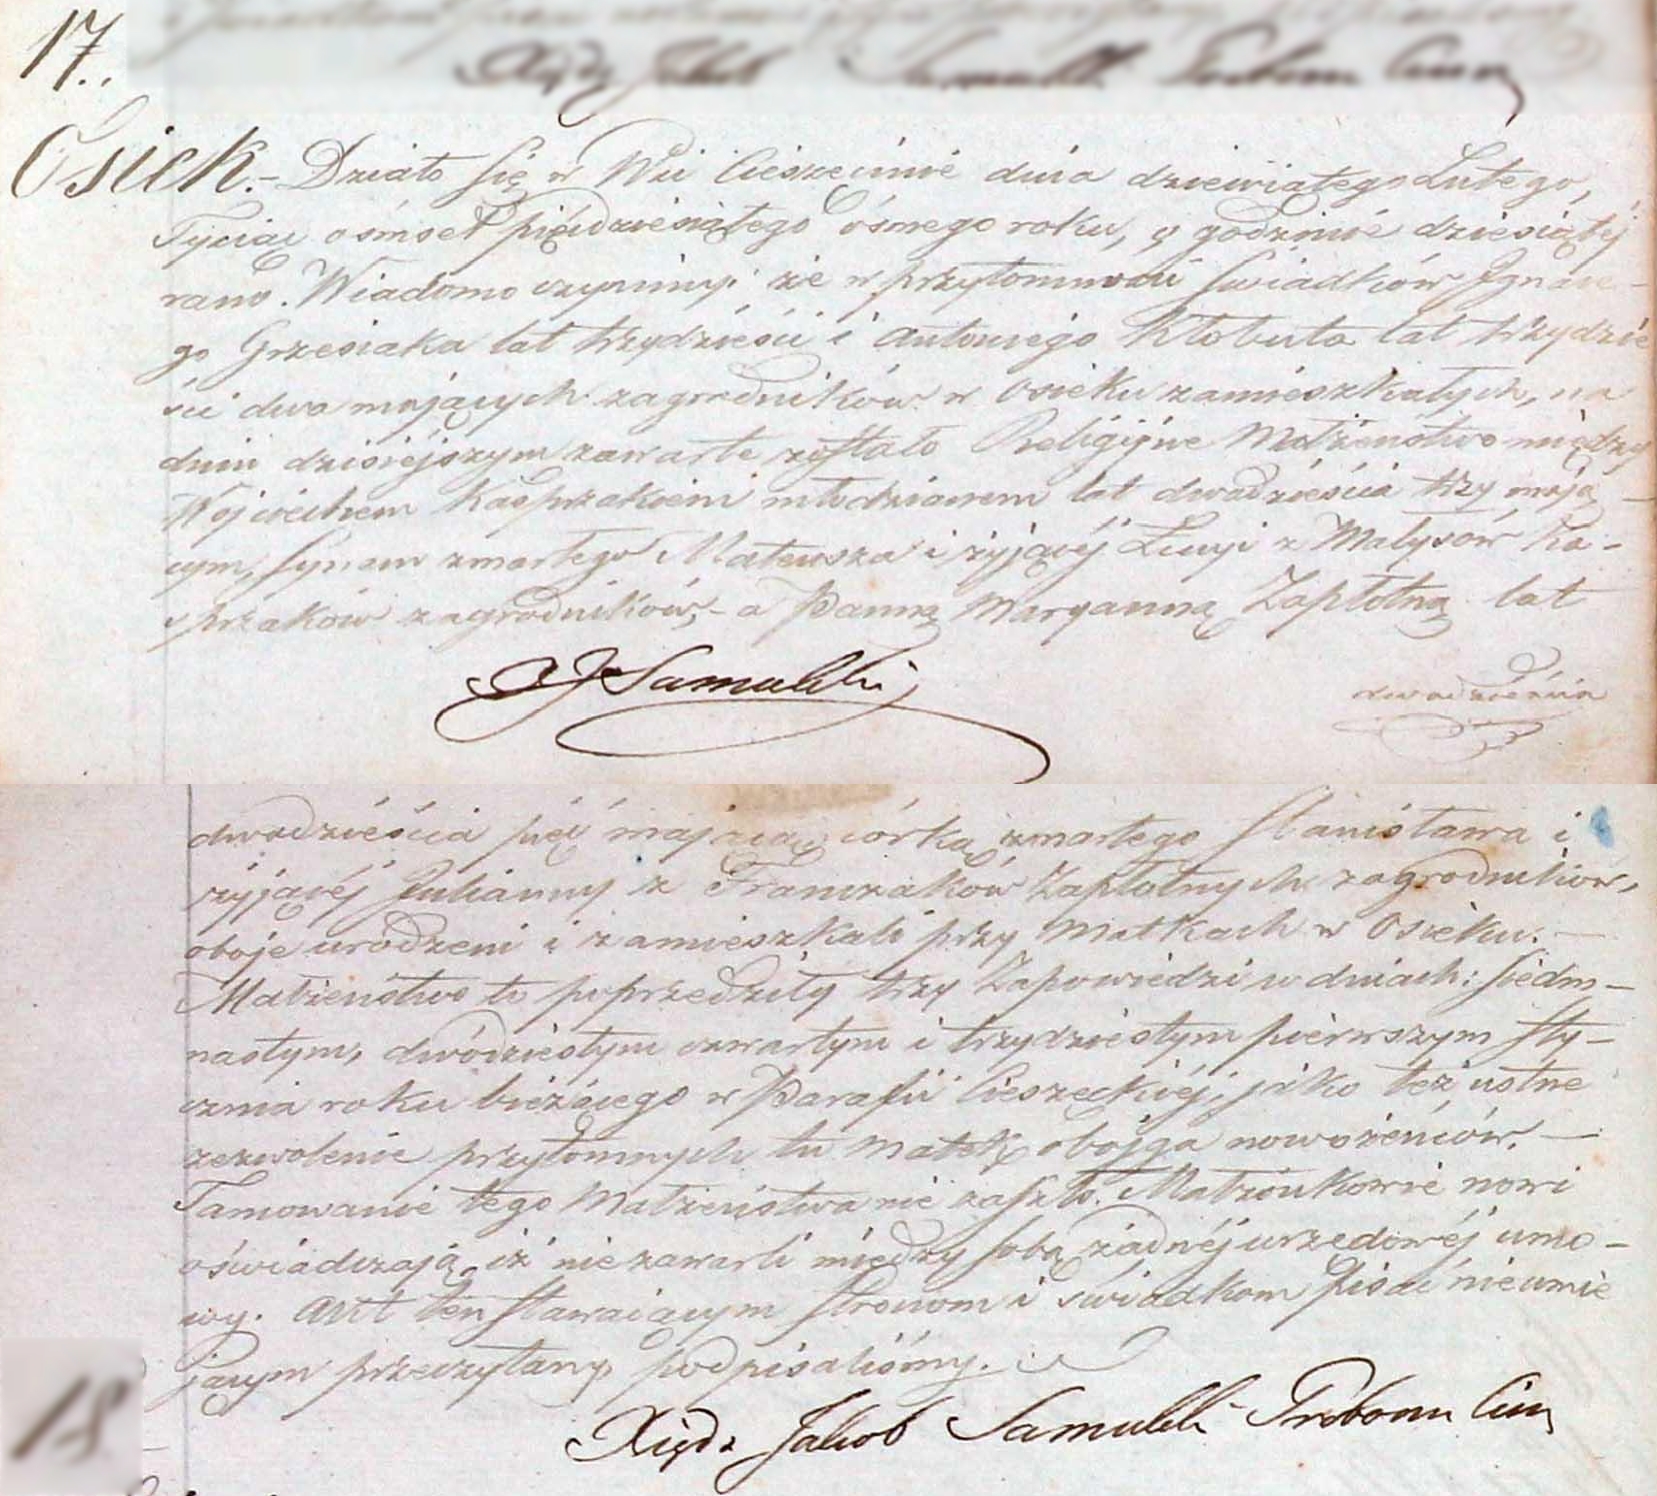 17.
Osiek.- Działo się w Wsi Cieszęcinie dnia dziewiątego Lutego,
Tysiąc ośmset pięćdziesiątego ósmego roku, o godzinie dziesiątéj
rano. Wiadomo czynimy, że w przytomności świadków Ignace-
go Grzesiaka lat trzydzieści i Antoniego Kłobuta lat trzydzie
ści dwa mających zagrodników w Osieku zamieszkałych, na
dniu dzisiéjszym zawarte zostało Religijne Małżeństwo między
Wojciechem Kasprzakiem młodzianem lat dwadzieścia trzy mają-
cym, synem zmarłego Mateusza i żyjącéj Łucyi z Małysów Ka-
sprzaków zagrodników,- a Panną Maryanną Zapłotną lat
XJSamulski
dwadzieścia
dwadzieścia pięć mającą, córką zmarłego Stanisława i
żyjącéj Julianny z Franczaków Zapłotnych zagrodników,
oboje urodzeni i zamieszkali przy Matkach w Osieku.-
Małżeństwo to poprzedziły trzy Zapowiedzi w dniach: siedm-
nastym, dwódziestym czwartym i trzydziestym pierwszym Sty-
cznia roku bieżącego w Parafii Cieszęckiéj, jako też ustne
zezwolenie przytomnych tu Matek obojga nowożeńców.-
Tamowanie tego Małżeństwa nie zaszło. Małżonkowie nowi
oświadczają, iż nie zawarli między sobą żadnéj urzędowéj umo-
wy. Akt ten stawającym stronom i świadkom pisać nieumie
jącym przeczytany, podpisaliśmy.
Xiądz Jakób Samulski Probosz Cies
18